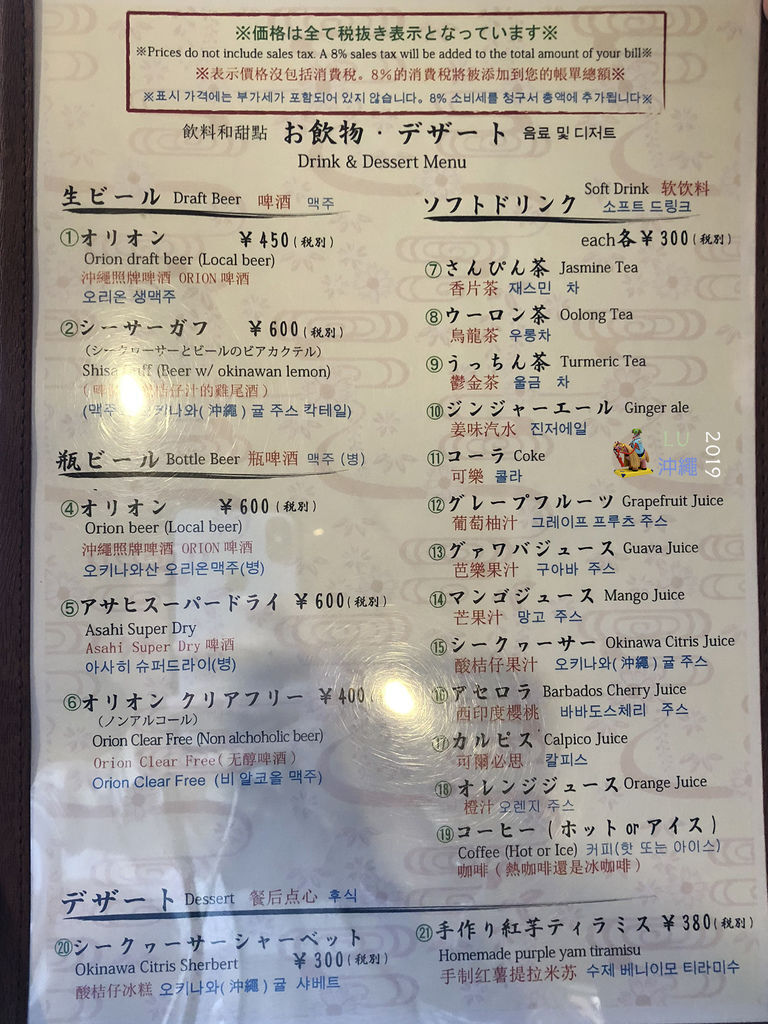 ※価格は全て税抜き表示となっています※
※Prices do not include sales tax. A 8% sales tax will be added to the total amount of your bill※
※表示價格沒包括消費稅。8%的消費稅將被添加到您的帳單總額※
※표시 가격에는 부가세가 포함되어 있지 않습니다。8% 소비세를 청구서 총액에 추가됩니다※
飲料和甜點 お飲物・デザート 음료 및 디저트
Drink & Dessert Menu
生ビール Draft Beer 啤酒 맥주
①オリオン ¥450(税別)
Orion draft beer (Local beer)
沖繩照牌啤酒 ORION 啤酒
오리온 생맥주
②シーサーガフ ¥600(税別)
(シークヮーサーとビールのビアカクテル)
Shisa Guff (Beer w/ okinawan lemon)
桔仔汁的雞尾酒)
(맥주 키나와(沖繩) 귤 주스 칵테일)
瓶ビール Bottle Beer 瓶啤酒 맥주 (병)
④オリオン ¥600(税別)
Orion beer (Local beer)
沖繩照牌啤酒 ORION 啤酒
오키나와산 오리온맥주(병)
⑤アサヒスーパードライ ¥600(税別)
Asahi Super Dry
Asahi Super Dry 啤酒
아사히 슈퍼드라이(병)
⑥オリオン クリアフリー ¥400
(ノンアルコール)
Orion Clear Free (Non alchoholic beer)
Orion Clear Free(无醇啤酒)
Orion Clear Free (비 알코올 맥주)
ソフトドリンク Soft Drink 软饮料
소프트 드링크
each各¥300(税別)
⑦さんぴん茶 Jasmine Tea
香片茶 재스민 차
⑧ウーロン茶 Oolong Tea
烏龍茶 우롱차
⑨うっちん茶 Turmeric Tea
鬱金茶 울금 차
⑩ジンジャーエール Ginger ale
姜味汽水 진저에일
⑪コーラ Coke
可樂 콜라
⑫グレープフルーツ Grapefruit Juice
葡萄柚汁 그레이프 프루츠 주스
⑬グァワバジュース Guava Juice
芭樂果汁 구아바 주스
⑭マンゴジュース Mango Juice
芒果汁 망고 주스
⑮シークヮーサー Okinawa Citris Juice
酸桔仔果汁 오키나와(沖繩) 귤 주스
⑯アセロラ Barbados Cherry Juice
西印度櫻桃 바바도스체리 주스
⑰カルピス Calpico Juice
可爾必思 칼피스
⑱オレンジジュース Orange Juice
橙汁 오렌지 주스
⑲コーヒー (ホット or アイス)
Coffee (Hot or Ice) 커피(핫 또는 아이스)
咖啡(熱咖啡還是冰咖啡)
LU
沖繩
2019
デザート Dessert 餐后点心 후식
⑳シークヮーサーシャーベット
Okinawa Citris Sherbert ¥300(税別)
酸桔仔冰糕 오키나와(沖繩) 귤 샤베트
㉑手作り紅芋ティラミス ¥380(税別)
Homemade purple yam tiramisu
手制红薯提拉米苏 수제 베니이모 티라미수